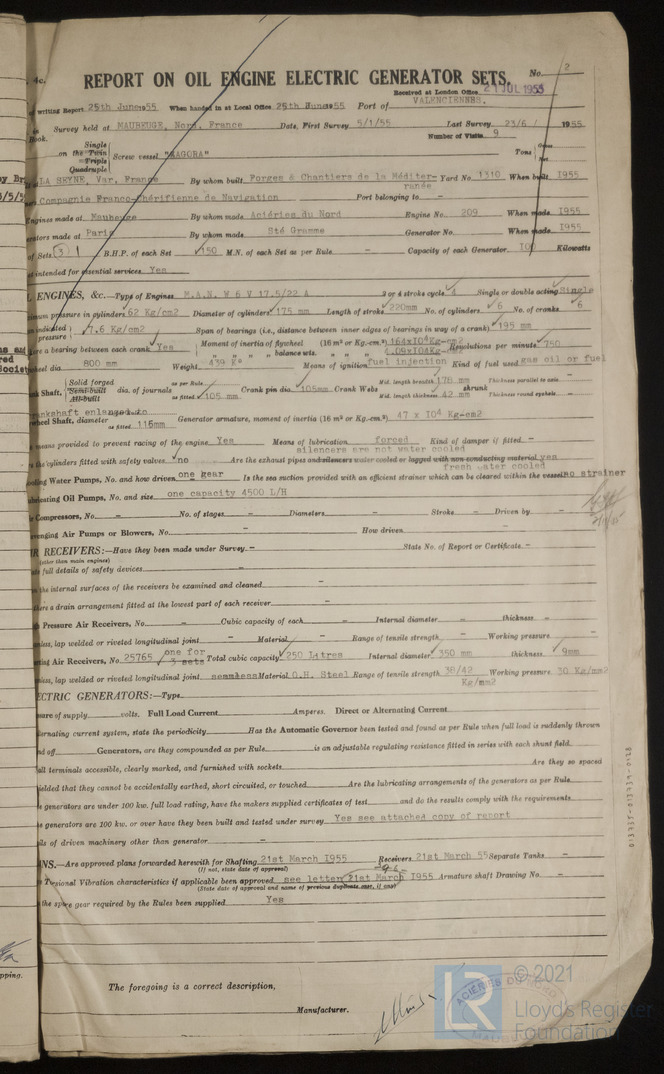 4c.
REPORT ON OIL ENGINE ELECTRIC GENERATOR SETS.
No. 2
Received at London Office 21 JUL 1955
writing Report 25th June 1955 When handed in at Local Office 25th June 1955 Port of VALENCIENNES.
Survey held at MAUBEUGE, Nord, France Date, First Survey 5/1/55 Last Survey 23/6/ 1955
Book. Number of Visits 9
on the Single Twin Triple Quadruple Screw vessel "ZAGORA" Tons Gross Net
LA SEYNE, Var, France By whom built Forges & Chantiers de la Méditerranée Yard No. 1310 When built 1955
Compagnie Franco-Chérifienne de Navigation Port belonging to -
Engines made at Maubeuge By whom made Aciéries du Nord Engine No. 209 When made 1955
made at Paris By whom made Sté Gramme Generator No. When made 1955
of Sets 3 1 B.H.P. of each Set 150 M.N. of each Set as per Rule - Capacity of each Generator 100 Kilowatts
intended for essential services Yes
ENGINES, &c.—Type of Engines M.A.N. W 6 V 17.5/22 A 2 or 4 stroke cycle 4 Single or double acting Single
pressure in cylinders 62 Kg/cm2 Diameter of cylinders 175 mm Length of stroke 220mm No. of cylinders 6 No. of cranks 6
indicated pressure 7.6 Kg/cm2 Span of bearings (i.e., distance between inner edges of bearings in way of a crank) 195 mm
a bearing between each crank Yes Moment of inertia of flywheel (16 m² or Kg.-cm.²) 164x10⁴Kg-cm2 Revolutions per minute 750
" " " balance wts. " " " 4.09x10⁴Kg-cm2
dia. 800 mm Weight 439 K° Means of ignition fuel injection Kind of fuel used gas oil or fuel
Shaft, Solid forged Semi-built All-built dia. of journals as per Rule as fitted 105 mm Crank pin dia. 105mm Crank Webs Mid. length breadth 176 mm Mid. length thickness 42 mm shrunk Thickness parallel to axis - Thickness round eyeholes -
crankshaft enlarged to
Shaft, diameter as fitted 115mm Generator armature, moment of inertia (16 m² or Kg.-cm.²) 47 x 10⁴ Kg-cm2
means provided to prevent racing of the engine Yes Means of lubrication forced Kind of damper if fitted -
silencers are not water cooled
the cylinders fitted with safety valves no Are the exhaust pipes and silencers water cooled or lagged with non-conducting material yes
fresh water cooled
Water Pumps, No. and how driven one gear Is the sea suction provided with an efficient strainer which can be cleared within the vessel no strainer
Oil Pumps, No. and size one capacity 4500 L/H
Compressors, No. - No. of stages - Diameters - Stroke - Driven by -
Air Pumps or Blowers, No. - How driven -
RECEIVERS:—Have they been made under Survey - State No. of Report or Certificate -
(other than main engines)
full details of safety devices -
the internal surfaces of the receivers be examined and cleaned -
there a drain arrangement fitted at the lowest part of each receiver -
Pressure Air Receivers, No. - Cubic capacity of each - Internal diameter - thickness -
lap welded or riveted longitudinal joint - Material - Range of tensile strength - Working pressure -
Air Receivers, No. 25765 one for 3 sets Total cubic capacity 250 Litres Internal diameter 350 mm thickness 9mm
lap welded or riveted longitudinal joint seamless Material O.H. Steel Range of tensile strength 38/42 Kg/mm2 Working pressure 30 Kg/mm2
ELECTRIC GENERATORS:—Type
of supply volts. Full Load Current Amperes. Direct or Alternating Current
alternating current system, state the periodicity Has the Automatic Governor been tested and found as per Rule when full load is suddenly thrown
off Generators, are they compounded as per Rule is an adjustable regulating resistance fitted in series with each shunt field.
all terminals accessible, clearly marked, and furnished with sockets Are they so spaced
shielded that they cannot be accidentally earthed, short circuited, or touched Are the lubricating arrangements of the generators as per Rule
generators are under 100 kw. full load rating, have the makers supplied certificates of test and do the results comply with the requirements
generators are 100 kw. or over have they been built and tested under survey Yes see attached copy of report
of driven machinery other than generator -
PLANS.—Are approved plans forwarded herewith for Shafting 21st March 1955 Receivers 21st March 55 Separate Tanks -
(If not, state date of approval)
Torsional Vibration characteristics if applicable been approved see letter 21st March 1955 Armature shaft Drawing No. -
(State date of approval and name of previous duplicate case, if any)
the spare gear required by the Rules been supplied Yes
The foregoing is a correct description,
Manufacturer.
ACIÉRIES DU NORD
MAUBEUGE
LR
© 2021
Lloyd's Register
Foundation